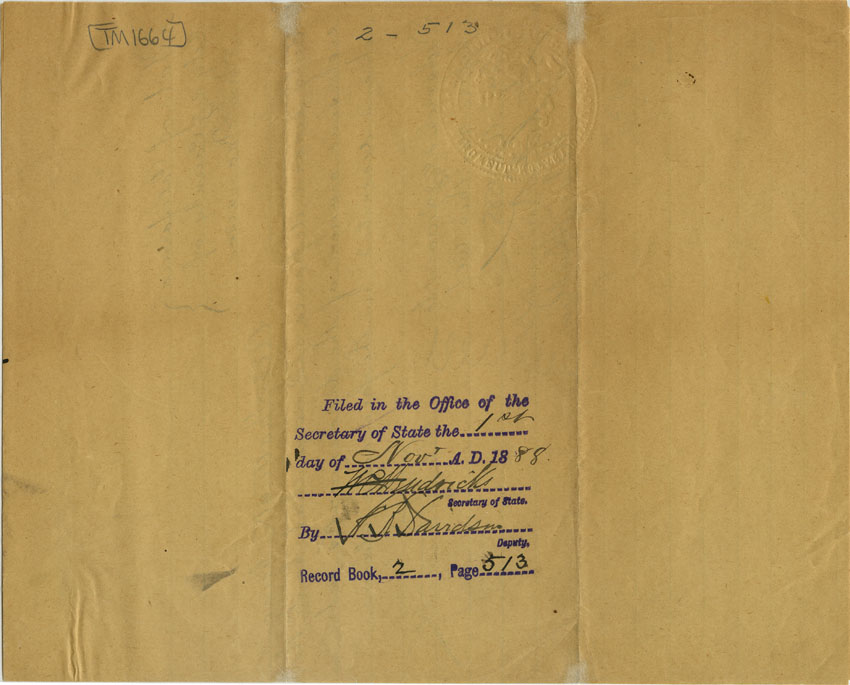 [TM1664]
2 - 513
Filed in the Office of the
Secretary of State the 1st
day of Nov A. D. 1888.
W C Hendricks
Secretary of State.
By Davidson
Deputy,
Record Book, 2, Page 513